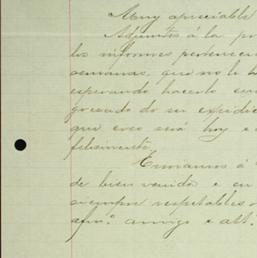 Muy apreciable
Adjuntos á la pre
los informes pertenecien
semanas, que no le h
esperando hacerlo
gresado de su expidic
que creo será hoy e
felizmente.
Enviamos á
de bien venido e
siempre respetables
afmo. amigo e att.